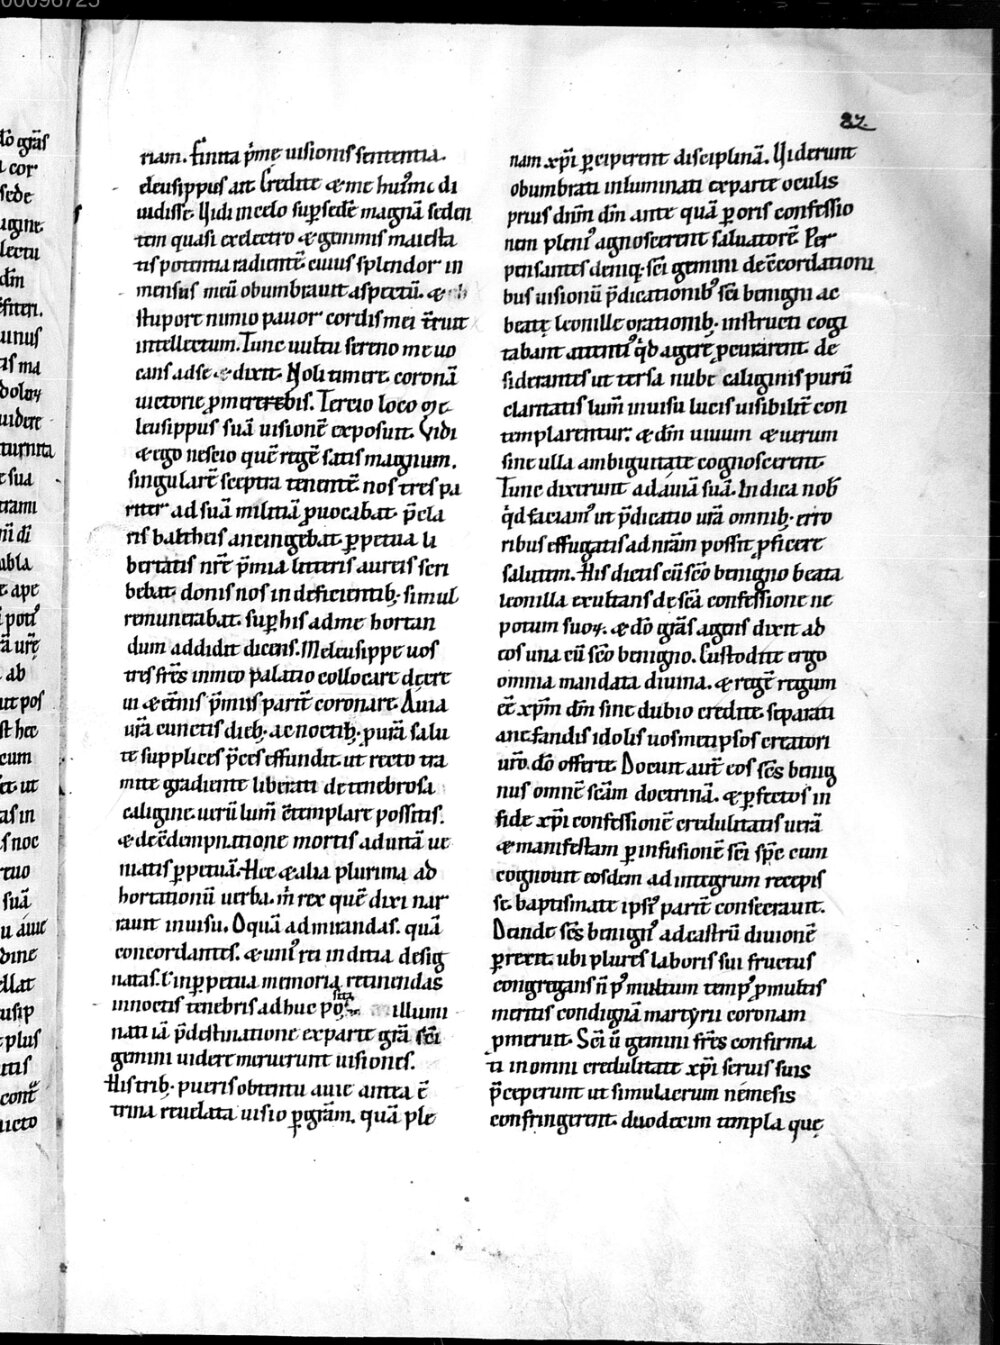 00098725
82.
riam. Finita p̄mę uisionis sententia.
eleusippus ait Credite & me hui᷒mⁱ di
uidisse. Uidi in celo sup̱ sedē magnā seden
tem quasi ex electro & gemmis maiesta
tis potentia radientē. cuius splendor in
mensus meū obumbrauit aspectū. &
stupore nimio pauor cordis mei t̄ruit
intellectum. Tunc uultu sereno me uo
cans ad se & dixit. Noli timere. coronā
uictorie ꝓmereberis. Tercio loco me
leusippus suā uisionē exposuit. Vidi
& ego nescio quē regē satis magnum.
singularē sceptra tenentē nos tres pa
riter ad suā militiā ꝓuocabat. p̄cla
ris baltheis ancingebat. ꝑpetua li
bertatis nr̄e p̄mia litteris aureis scri
bebat. donis nos indeficientib; simul
remunerabat. suꝑ his ad me hortan
dum addidit dicens. Meleusippe uos
tres fr̄es in meo palatio collocare decre
ui & et̄nis p̄miis parit̄ coronare. Auia
ur̄a cunctis dieb; ac noctib; ꝓ ur̄a salu
te supplices p̄ces effundit. ut recto tra
mite gradiente liberati de tenebrosa
caligine. uerū lum̄ c̄templare possitis.
& de c̄dempnatione mortis ad uitā ue
niatis ꝑpetuā. Hec & alia plurima ad
hortationū uerba. m̄ rex quē dixi nar
rauit in uisu. O quā admirandas. quā
concordantes. & uni᷒ rei inditia desig
natas. C̄ inꝑpetua memoria retinendas
in noctis tenebris adhuc po sita illumi
nati iā p̄destinatione ex parte gr̄a sc̄i
gemini uidere meruerunt uisiones.
His trib; pueris obtentu auie antea ē
trina reuelata uisio ꝑ gr̄am. quā ple
nam xp̄i ꝑciperent disciplinā. Uiderunt
obumbrati inluminati ex parte oculis
prius dn̄m dn̄m ante quā ꝑ oris confessio
nem pleni᷒ agnoscerent saluatorē. Per
pensantes deniq; sc̄i gemini de c̄cordationi
bus uisionū p̄dicationib᷒ sc̄i benigni ac
beatę leonille orationib; instructi cogi
tabant attenti᷒ qd̄ agere ꝓcurarent. de
siderantes ut tersa nube caliginis purū
claritatis lum̄ in uisu lucis uisibilit̄ con
templarentur. & dn̄m uiuum & uerum
sine ulla ambiguitate cognoscerent.
Tunc dixerunt ad auiā suā. Indica nob̄
qd̄ faciam᷒ ut p̄dicatio ur̄a omnib; erro
ribus effugatis ad nr̄am possit ꝓficere
salutem. His dictis cū sc̄o benigno beata
leonilla exultans de sc̄a confessione ne
potum suoꝝ. & dō gr̄as agens dixit ad
eos una cū sc̄o benigno. Custodite ergo
omnia mandata diuina. & regē regum
eē xp̄m dn̄m sine dubio credite. separati
a nefandis idolis uosmetipsos creatori
ur̄o dō offerte. Docuit aut̄ eos sc̄s benig
nus omnē sc̄am doctrinā. & ꝑfectos in
fide xp̄i confessionē credulitatis uerā
& manifestam ꝑ infusionē sc̄i sp̄c cum
cognouit eosdem ad integrum recepis
se. baptismate ipsi᷒ parit̄ consecrauit.
Deinde sc̄s benign᷒ ad castrū diuionē
ꝑrexit. ubi plures laboris sui fructus
congregans n̄ p᷒ multum temp᷒ ꝓ multis
meritis condignā martyrii coronam
ꝓmeruit. Sc̄i ū gemini fr̄es confirma
ti in omni credulitate xp̄i seruis suis
p̄ceperunt ut simulacrum nemesis
confringerent. duodecim templa quę